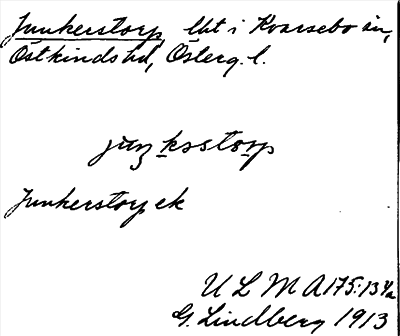 Junkerstorp, lht i Kvarsebo sn,
Östkinds hd, Österg. l.
juŋksstorp
Junkerstorp ek
U L M A 175:13 4a
G. Lindberg 1913